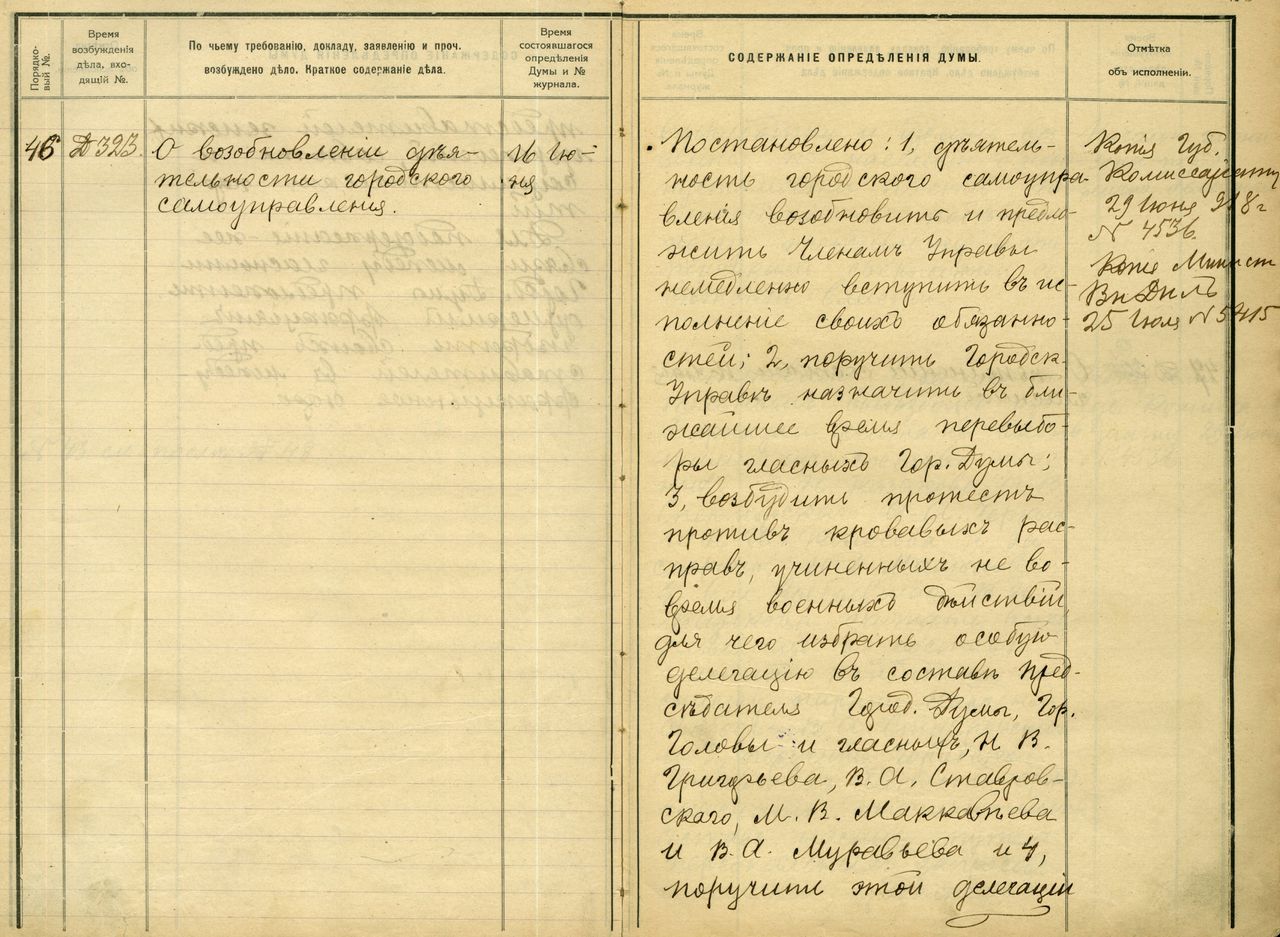 Порядко-
вый №.
Время
возбужденія
дѣла, вхо-
дящій №.
По чьему требованію, докладу, заявленію и проч.
возбуждено дѣло. Краткое содержаніе дѣла.
Время
состоявшагося
опредѣленія
Думы и №
журнала.
СОДЕРЖАНІЕ ОПРЕДѢЛЕНІЯ ДУМЫ.
Отмѣтка
объ исполненіи.
46
Д 323.
О возобновленіи дѣя-
тельности городского
самоуправленія.
16 Iю-
ня
Постановлено: 1, дѣятель-
ность городского самоупра-
вленія возобновить и предло-
жить Членамъ Управы
немедленно вступить въ ис-
полненіе своихъ обязанно-
стей; 2, поручить Городск.
Управѣ назначить въ бли-
жайшее время перевыбо-
ры гласныхъ Гор. Думы;
3, возбудить протестъ
противъ кровавыхъ рас-
правъ, учиненныхъ не во-
время военныхъ дѣйствій,
для чего избрать особую
делегацію въ составѣ Пред-
сѣдателя Город. Думы, Гор.
Головы и гласныхъ, Н. В.
Григорьева, В. А. Ставров-
скаго, М. В. Маккавѣева
и В. А. Муравьева и 4,
поручить этой делегаціи
Копія Губ.
Комиссаріату
29 Iюня 918 г
№ 4536.
Копія Минист
Вн Дѣлъ
25 Iюля № 5415